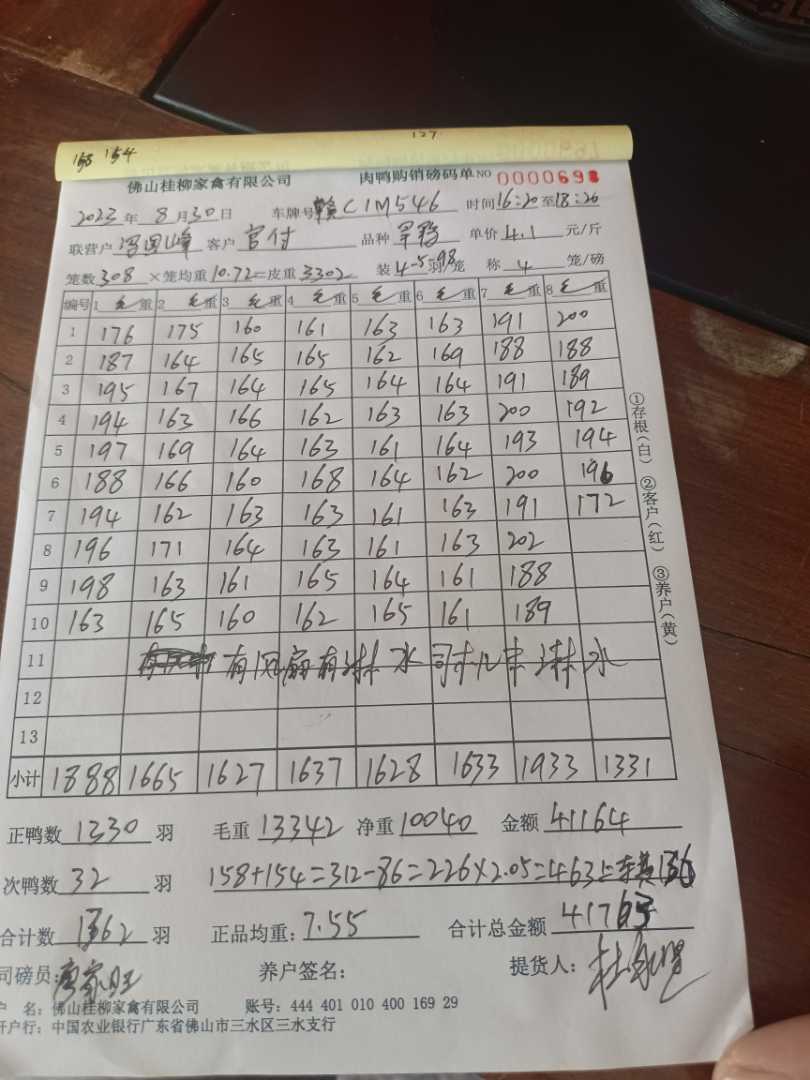 127
158 154
佛山桂柳家禽有限公司 肉鸭购销磅码单 NO 0000698
2023年8月30日 车牌号赣C1M546 时间16:20至18:20
联营户冯国峰 客户官付 品种旱鸭 单价4.1元/斤
笼数308×笼均重10.72=皮重3302 装4-5-98羽/笼 称4笼/磅
编号 1毛重 2毛重 3毛重 4毛重 5毛重 6毛重 7毛重 8毛重
1 176 175 160 161 163 163 191 200
2 187 164 165 165 162 169 188 188
3 195 167 164 165 164 164 191 189
4 194 163 166 162 163 163 200 192
5 197 169 164 163 161 164 193 194
6 188 166 160 168 164 162 200 196
7 194 162 163 163 161 163 191 172
8 196 171 164 163 161 163 202
9 198 163 161 165 164 161 188
10 163 165 160 162 165 161 189
11 有风扇有淋水司机淋水
12
13
小计 1888 1665 1627 1637 1628 1633 1933 1331
正鸭数1330羽 毛重13342 净重10040 金额41164
次鸭数32羽 158+154=312-86=226×2.05=463
合计数1362羽 正品均重:7.55 合计总金额41763
司磅员:廖家旺 养户签名: 提货人:
户 名:佛山桂柳家禽有限公司 账号:444 401 010 400 169 29
开户行:中国农业银行广东省佛山市三水区三水支行
①存根(白) ②客户(红) ③养户(黄)